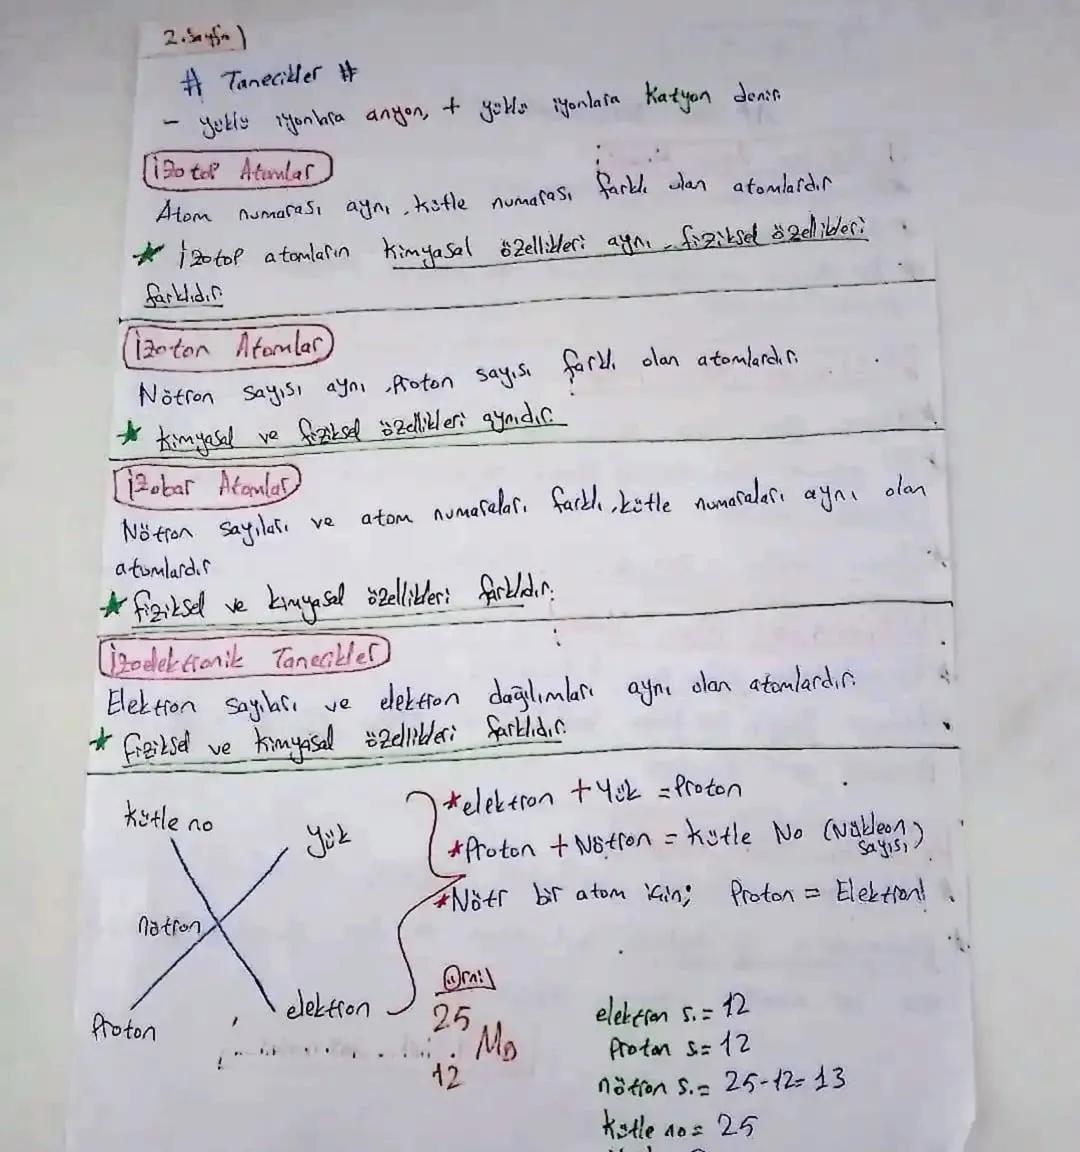 2.Sayfa)
# Tanecikler #
- yüklü iyonlara anyon, + yüklü iyonlara Katyon denir.
İzotop Atomlar
Atom numarası aynı, kütle numarası farklı olan atomlardır
★ İzotop atomların kimyasal özellikleri aynı, fiziksel özellikleri
farklıdır.
İzoton Atomlar
Nötron sayısı aynı, Proton sayısı farklı olan atomlardır.
★ kimyasal ve fiziksel özellikleri aynıdır.
İzobar Atomlar
Nötron sayıları ve atom numaraları farklı, kütle numaraları aynı olan
atomlardır
★ fiziksel ve kimyasal özellikleri farklıdır.
İzoelektronik Tanecikler
Elektron sayıları ve elektron dağılımları aynı olan atomlardır.
★ fiziksel ve kimyasal özellikleri farklıdır.
kütle no
Yük
nötron
Proton
elektron
*elektron + Yük = Proton
*Proton + Nötron = Kütle No (Nükleon sayısı)
*Nötr bir atom için; Proton = Elektron!
Örn:
25
12
elektron s. = 12
Proton s. = 12
nötron s. = 25-12= 13
Kütle no = 25